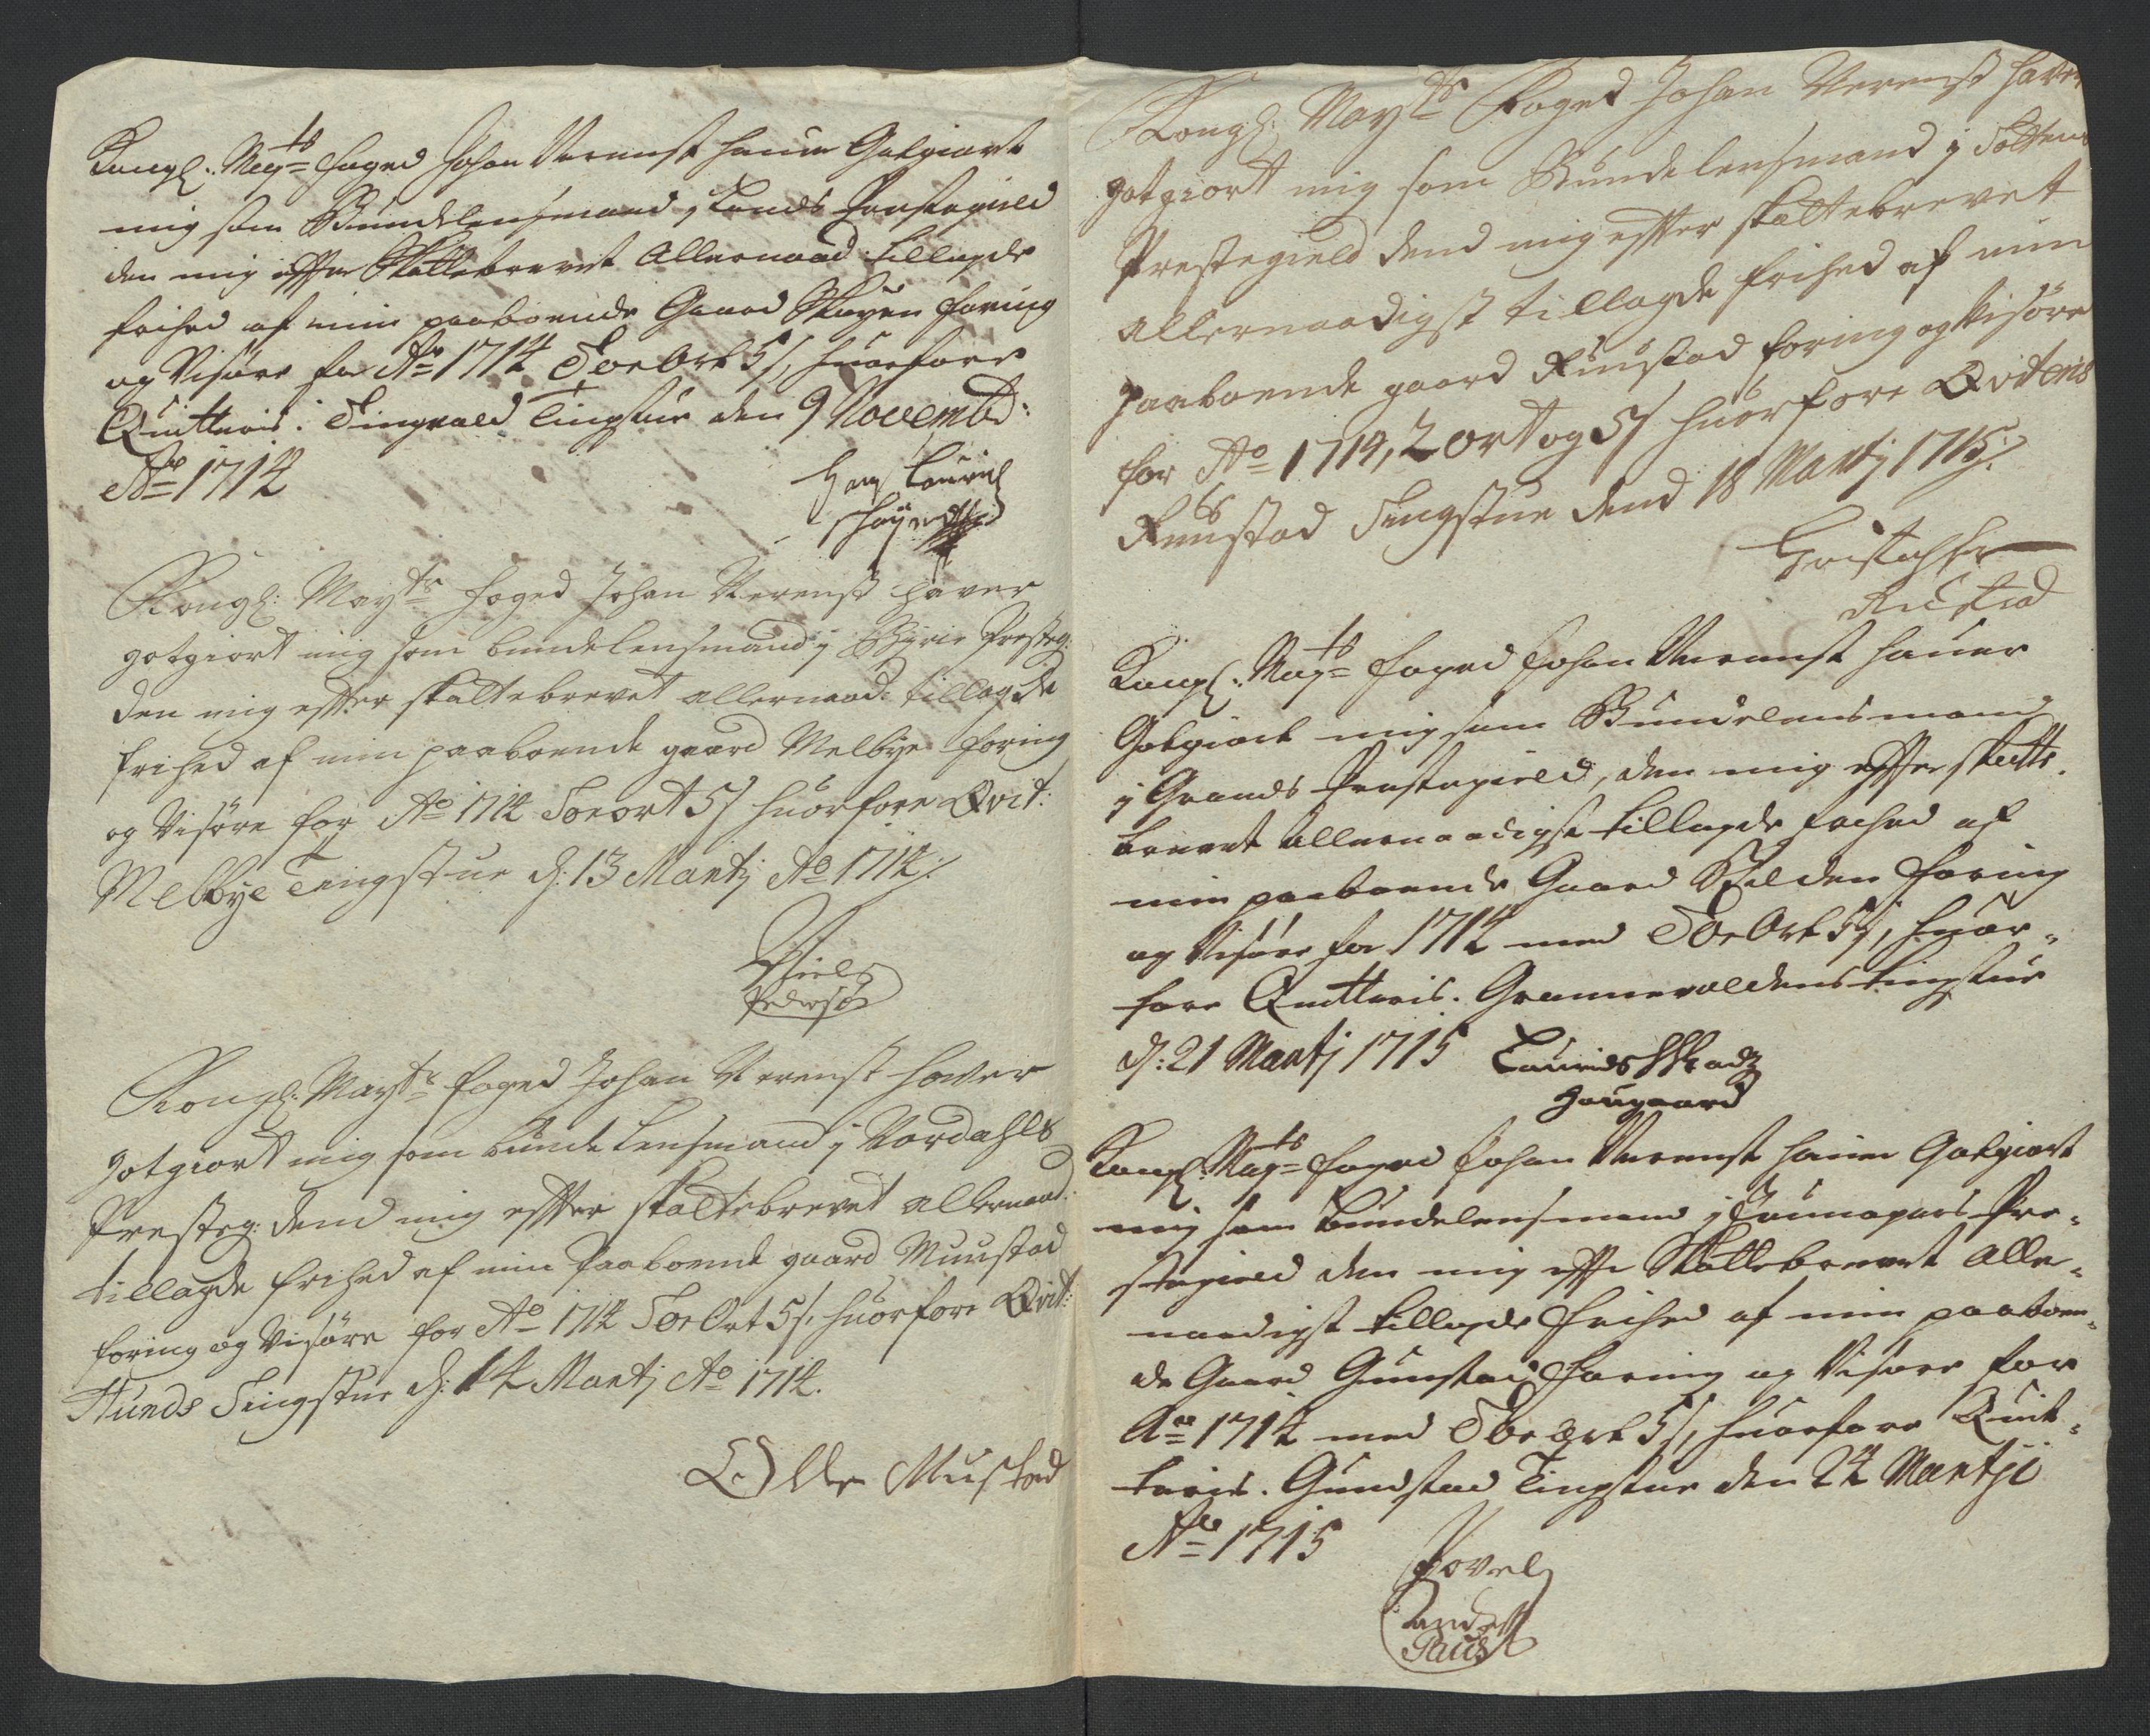 Kongl: May:ts Foged Johan Verenst hauer Gotgiort
mig som Bundelensmand j Lands Prestegield
den mig effter Skattebrevet Allernaad: tillagde
frihed af min paaboende Gaard Skøyen foring
og Visøre for Ao 1714 Toe Ort 5 s, huorfore
Quitteris. Tingvold Tingstue den 9 Novembr:
Ao 1714
Hans Lauridz
Schøyen
Kongl: Mayts foged Johan Verenst haver
gotgiort mig som bundelensmand j Byrie Presteg:
den mig effter skattebrevet allernaad: tillagde
frihed af min paaboende gaard Melbye foring
og Visøre for Ao 1714 Toe ort 5 s huorfore Qvit:
Melbye Tingstue d: 13 Martj Ao 1714
Niels
Pedersø
Kongl: Mayts foged Johan Verenst haver
gotgiort mig som bunde Lensmand j Vardahls
Presteg: dend mig effter skattebrevet allernaad:
tillagde frihed af min Paaboende gaard Muustad
foring og Visøre for Ao 1714 Toe Ort 5 s. huorfore Qvit:
Hunds Tingstue d: 14 Martj Ao 1714.
Olle Mustad
Kongl: Mayts Foged Johan Verenst haver
gotgiort mig som Bundelensmand j Tottens
Prestegield dend mig effter skattebrevet
allernaadigst tillagde frihed af min
paaboende gaard Ruustad foring og Visøre
for Ao 1714, 2 ort og 5 s huorfore Qvitteris
Ruustad Tingstue dend 18 Martj 1715
Christopher
Rustad
Kongl: May:ts foged Johan Verenst hauer
Gotgiort mig som Bundelensmand
j Grands Prestegield, den mig effter skatte
brevet allernaadigst tillagde frihed af
min paaboende Gaard Kielden foring
og Visøre for 1714 med Toe Ort 5 s, huor-
fore Quitteris. Grannevoldens tingstue
d: 21 Martj 1715 Laurids
Haugaard
Kongl: May:ts foged Johan Verenst hauer Gotgiort
mig som bundelensmand j Jevnagers Pre-
stegield den mig effter Skattebrevet Aller-
naadigst tillagde frihed af min paaboen-
de Gaard Gunstad foring og Visøre for
Ao 1714 med Toe Ort 5 s, huorfore Quit-
teris. Gundstad Tingstue den 24 Martji
Ao 1715
Povel
Paus